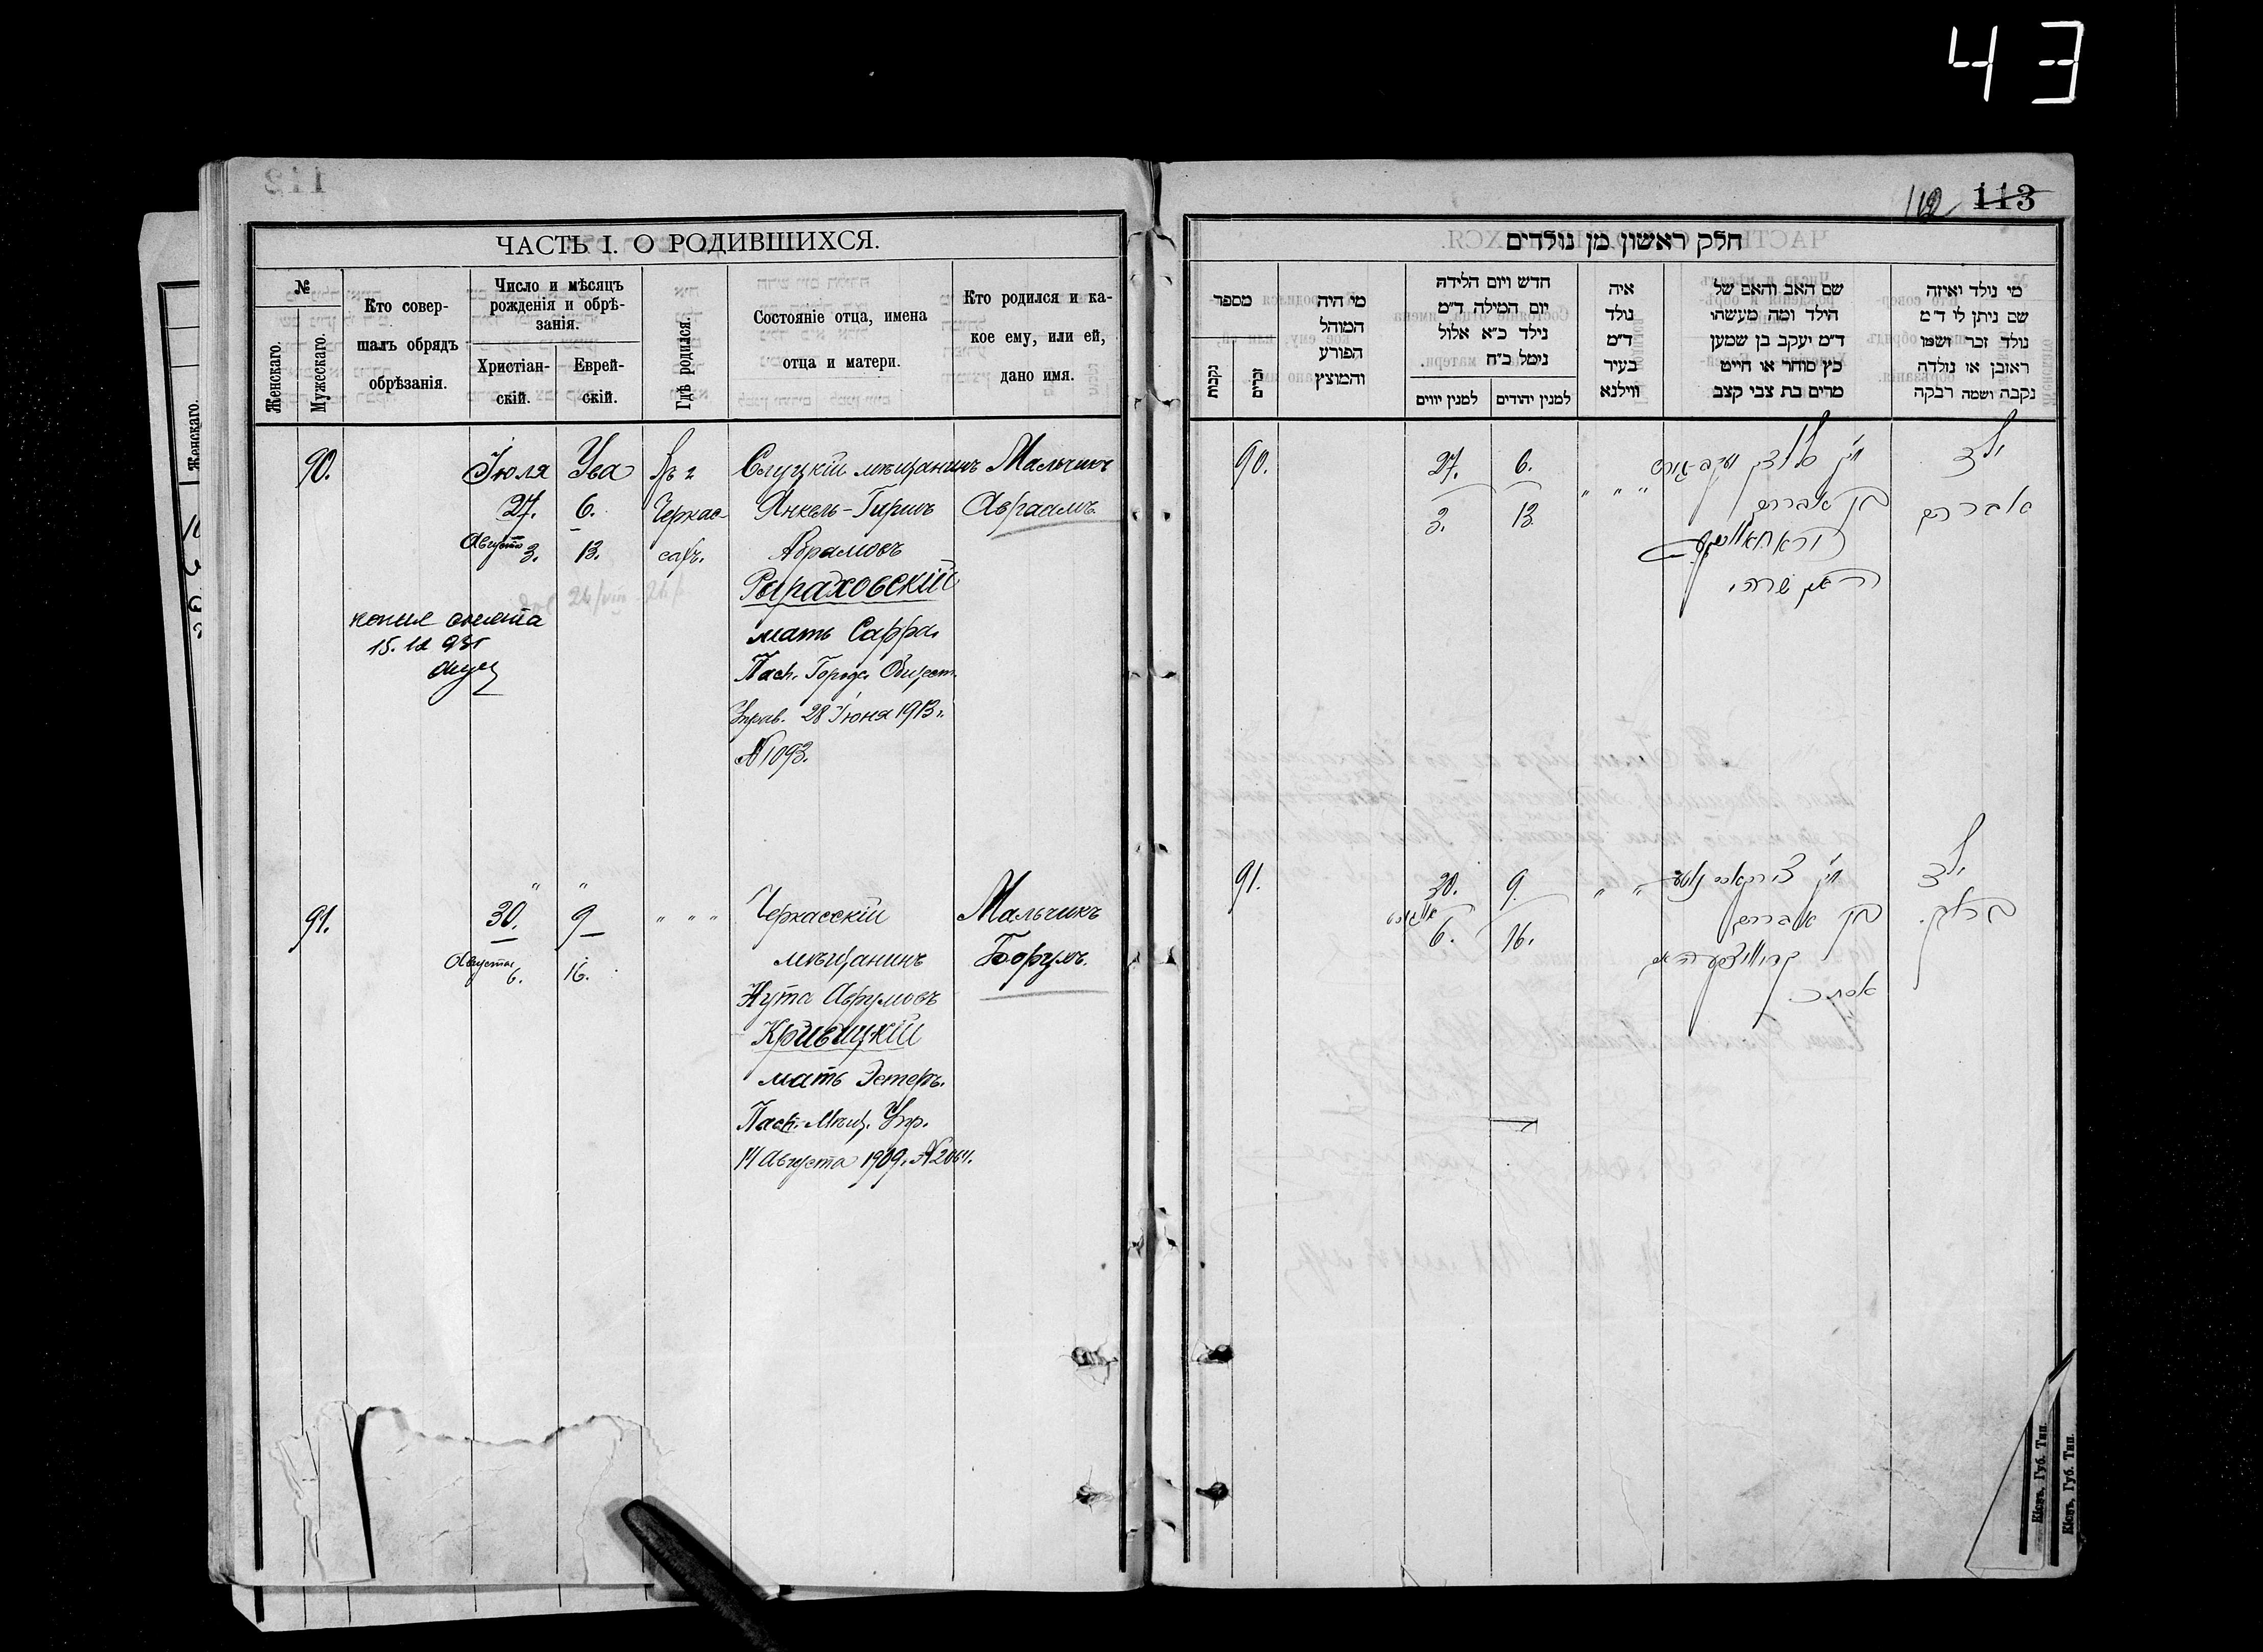 43
112
ЧАСТЬ I. О РОДИВШИХСЯ.
№
Женскаго.
Мужескаго.
Кто совер-
шалъ обрядъ
обрѣзанія.
Число и мѣсяцъ
рожденія и обрѣ-
занія.
Христіан-
скій.
Еврей-
скій.
Гдѣ родился.
Состояніе отца, имена
отца и матери.
Кто родился и ка-
кое ему, или ей,
дано имя.
90.
Іюля
27.
Августа 3.
Ува
6.
13.
Въ г
Черкас-
сахъ.
Слуцкій мѣщанинъ
Янкель-Гиршъ
Абрамовъ
Рыраховскій
мать Сарра.
Пасп. Городс. Общест.
Управ. 28 Іюня 1913 г.
№ 1093.
Мальчикъ
Авраамъ.
15. 12
91.
" 30.
Августа 6.
" 9
16.
" " "
Черкасскій
мѣщанинъ
Нута Аврумовъ
Кривицкій
мать Эстеръ.
Пасп. Мѣщ. Упр.
14 Августа 1909. № 2064.
Мальчикъ
Борухъ.
Женскаго.
113
112
חלק ראשון מן נולדים
מספר
נקבות
זכרים
מי היה
המוהל
הפורע
והמוצץ
חדש ויום הלידה
יום המילה ד״מ
נילד כ״א אלול
נימל כ״ח
למנין יווים
למנין יהודים
איה
נולד
ד״מ
בעיר
ווילנא
שם האב והאם של
הילד ומה מעשהו
ד״מ יעקב בן שמען
כץ סוחר או חייט
מרים בת צבי קצב
מי נולד ואיזה
שם ניתן לו ד״מ
נולד זכר ושמו
ראובן או נולדה
נקבה ושמה רבקה
90.
27.
3.
6.
13
" " "
בן אברהם
האם שרה
ילד
אברהם
91.
30.
6.
9.
16.
" "
בן אברהם
אסתר
ילד
ברוך.
Кіевъ, Губ. Тип.
Кіевъ, Губ. Тип.